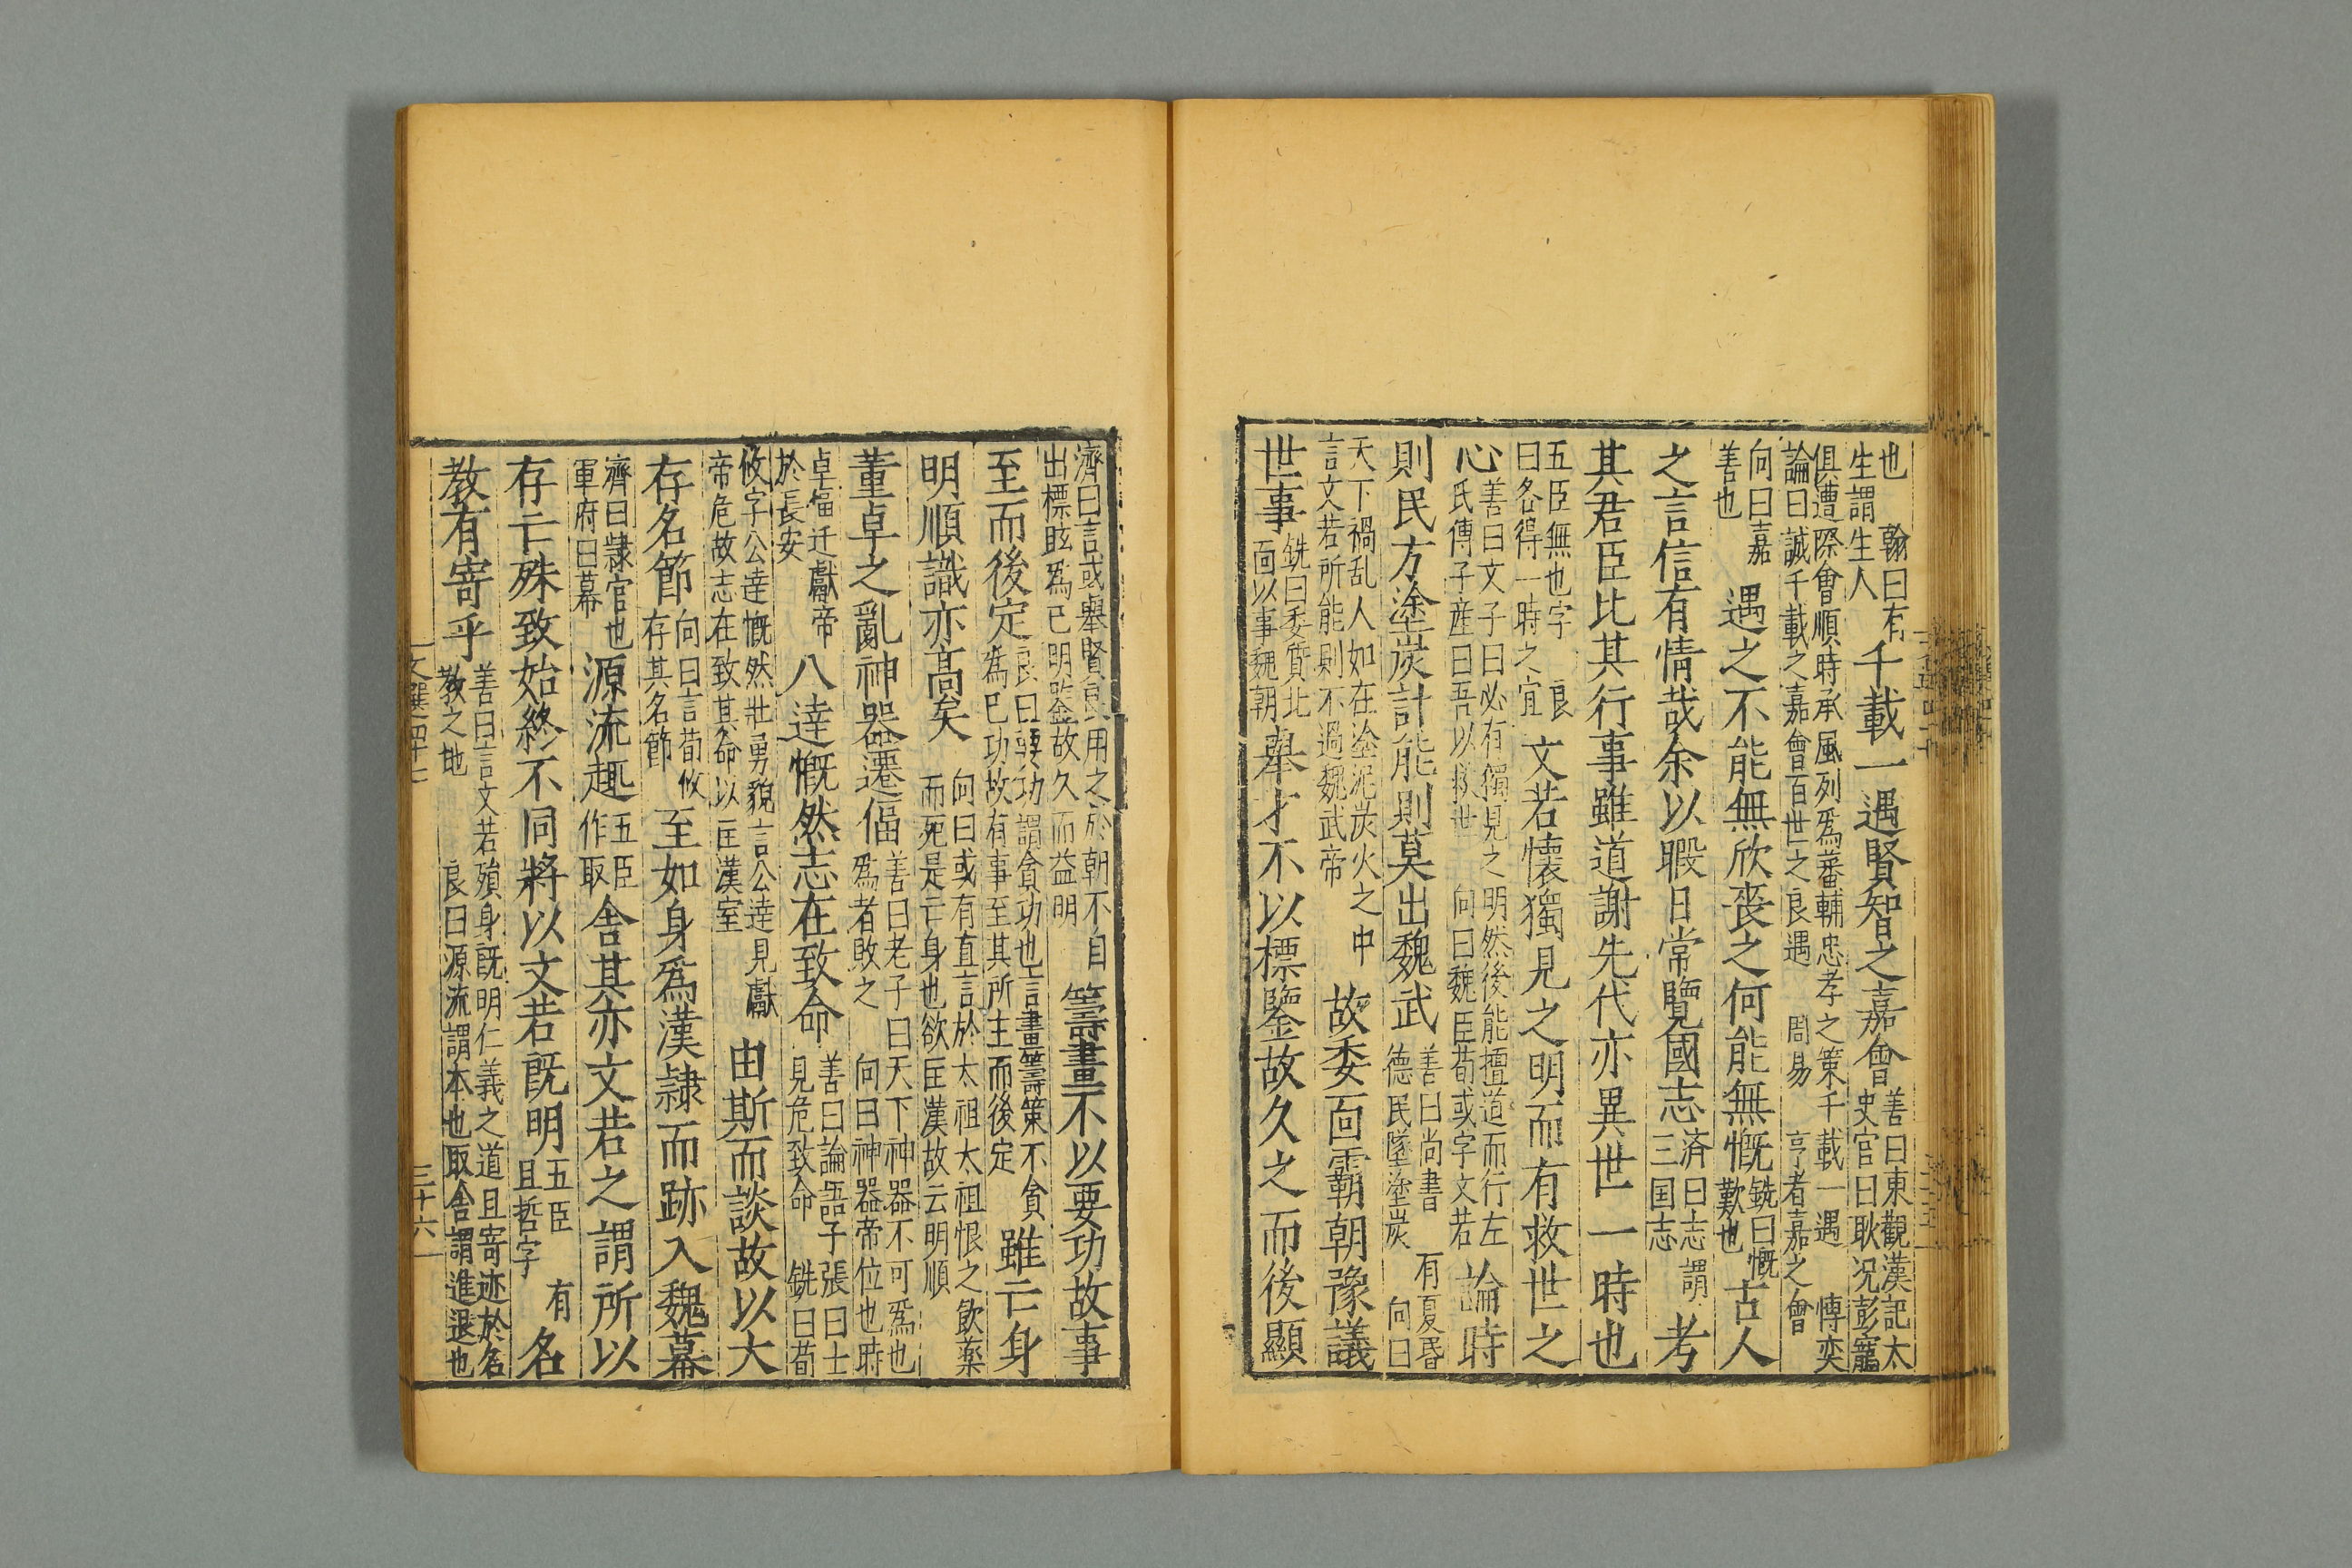 也　翰曰有
生謂生人
千載一遇賢智之嘉會
善曰東觀漢記太
史官曰耿况彭寵
俱遭際會順時承風列爲蕃輔忠孝之策千載一遇　傅奕
論曰誠千載之嘉會百世之良遇　周易　亨者嘉之會
向曰嘉
善也
遇之不能無欣喪之何能無慨
銑曰慨
歎也
古人
之言信有情哉余以暇日常覽國志
済曰志謂
三国志
考
其君臣比其行事雖道謝先代亦異世一時也
五臣無也字　良
曰各得一時之宜
文若懷獨見之明而有救世之
心
善曰文子曰必有獨見之明然後能擅道而行左
氏傳子産曰吾以救世　向曰魏臣荀或字文若
論時
則民方塗炭計能則莫出魏武
善曰尚書　有夏昏
德民墜塗炭　向曰
天下禍乱人如在塗泥炭火之中
言文若所能則不過魏武帝
故委面霸朝豫議
世事
銑曰委質北
面以事魏朝
舉才不以標鑒故久之而後顯
濟曰言或舉賢良用之於朝不自
出標眩爲己明鑒故久而益明
籌畫不以要功故事
至而後定
良曰要功謂貪功也言畫籌策不貪
爲己功故有事至其所主而後定
雖亡身
明順識亦高矣
向曰或有直言於太祖太祖恨之飲薬
而死是亡身也欲匡漢故云明順
董卓之亂神器遷偪
善曰老子曰天下神器不可爲也
爲者敗之　向曰神器帝位也時
卓偪迁獻帝
於長安
八逹慨然志在致命
善曰論語子張曰士
見危致命　銑曰荀
攸字公逹慨然壯勇貌言公逹見獻
帝危故志在致其命以匡漢室
由斯而談故以大
存名節
向曰言荀攸
存其名節
至如身爲漢隷而跡入魏幕
濟曰隷官也
軍府曰幕
源流趣
五臣
作取
舍其亦文若之謂所以
存亡殊致始終不同將以文若既明
五臣　有
且哲字
名
教有寄乎
善曰言文若殞身既明仁義之道且寄迹於名
教之地　良曰源流謂本也取舍謂進退也
文選四十七
三十六